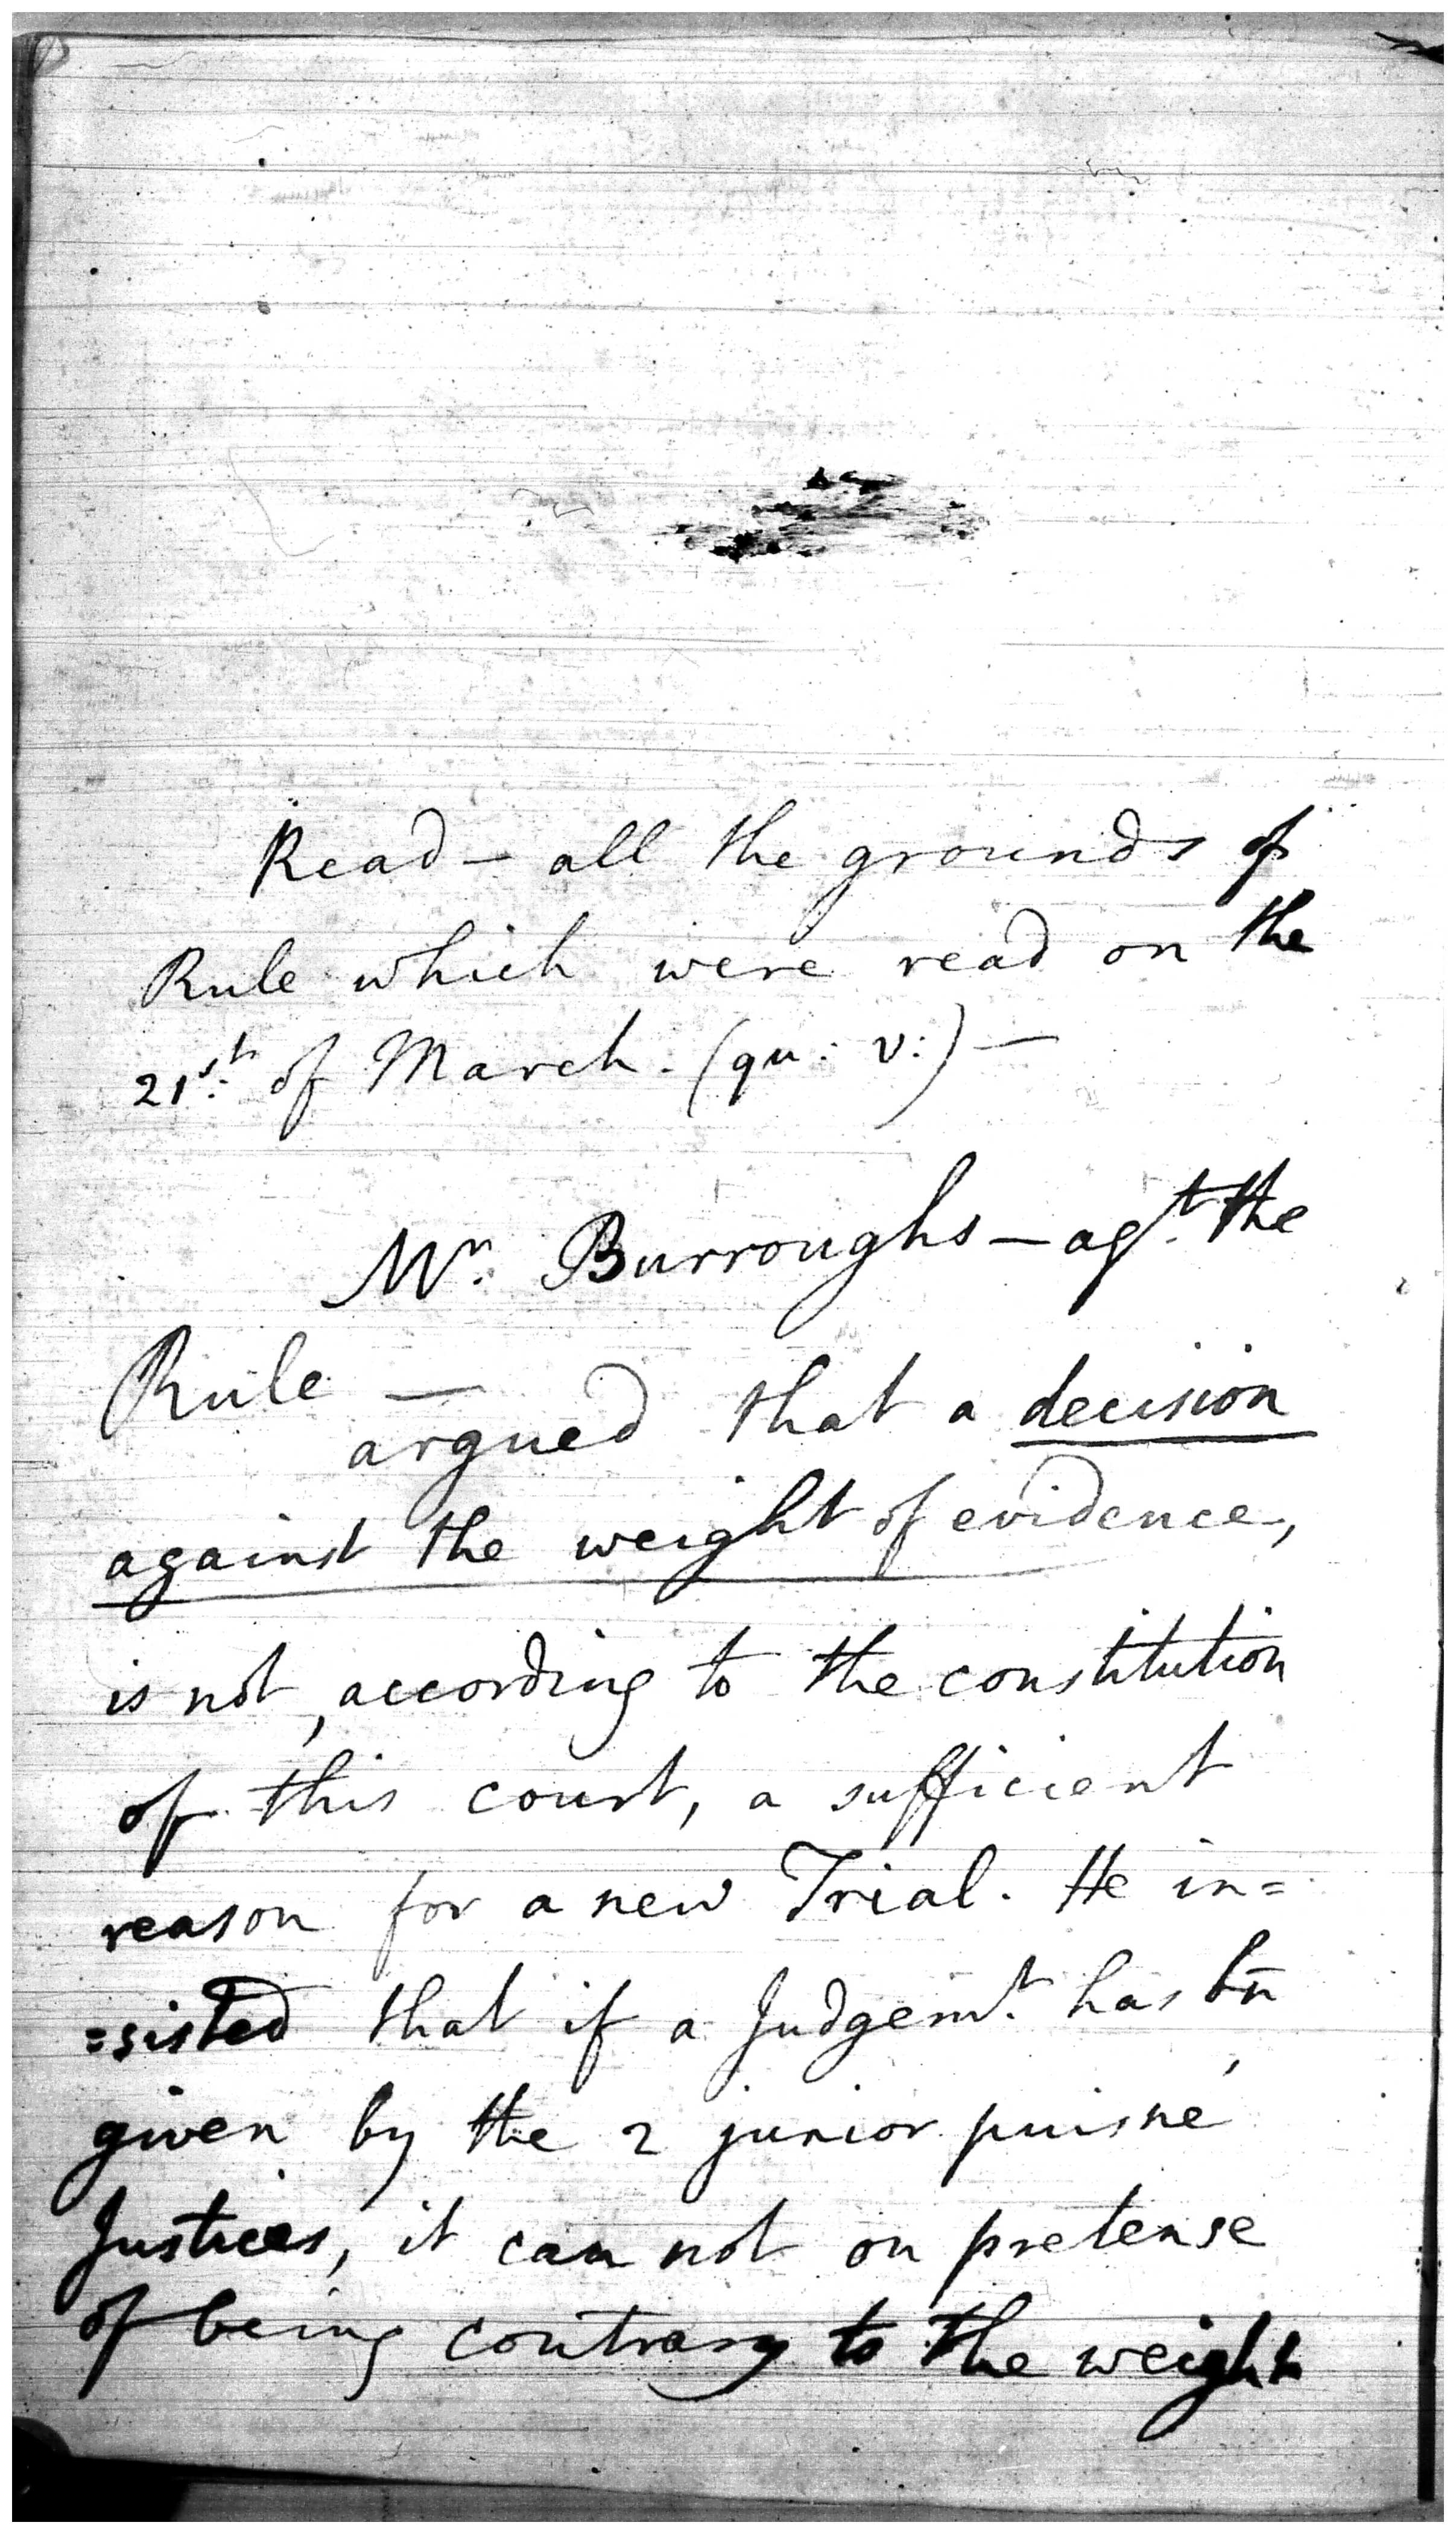 Read — all the grounds of
Rule which were read on the
21st. of March. (qu: v:) —
Mr. Burroughs — agt. the
Rule —
argued that a decision
against the weight of evidence,
is not, according to the constitution
of this court, a sufficient
reason for a new Trial. He in=
=sisted that if a Judgemt. has bn̄
given by the 2 junior puisné
Justices, it can not on pretense
of being contrary to the weight